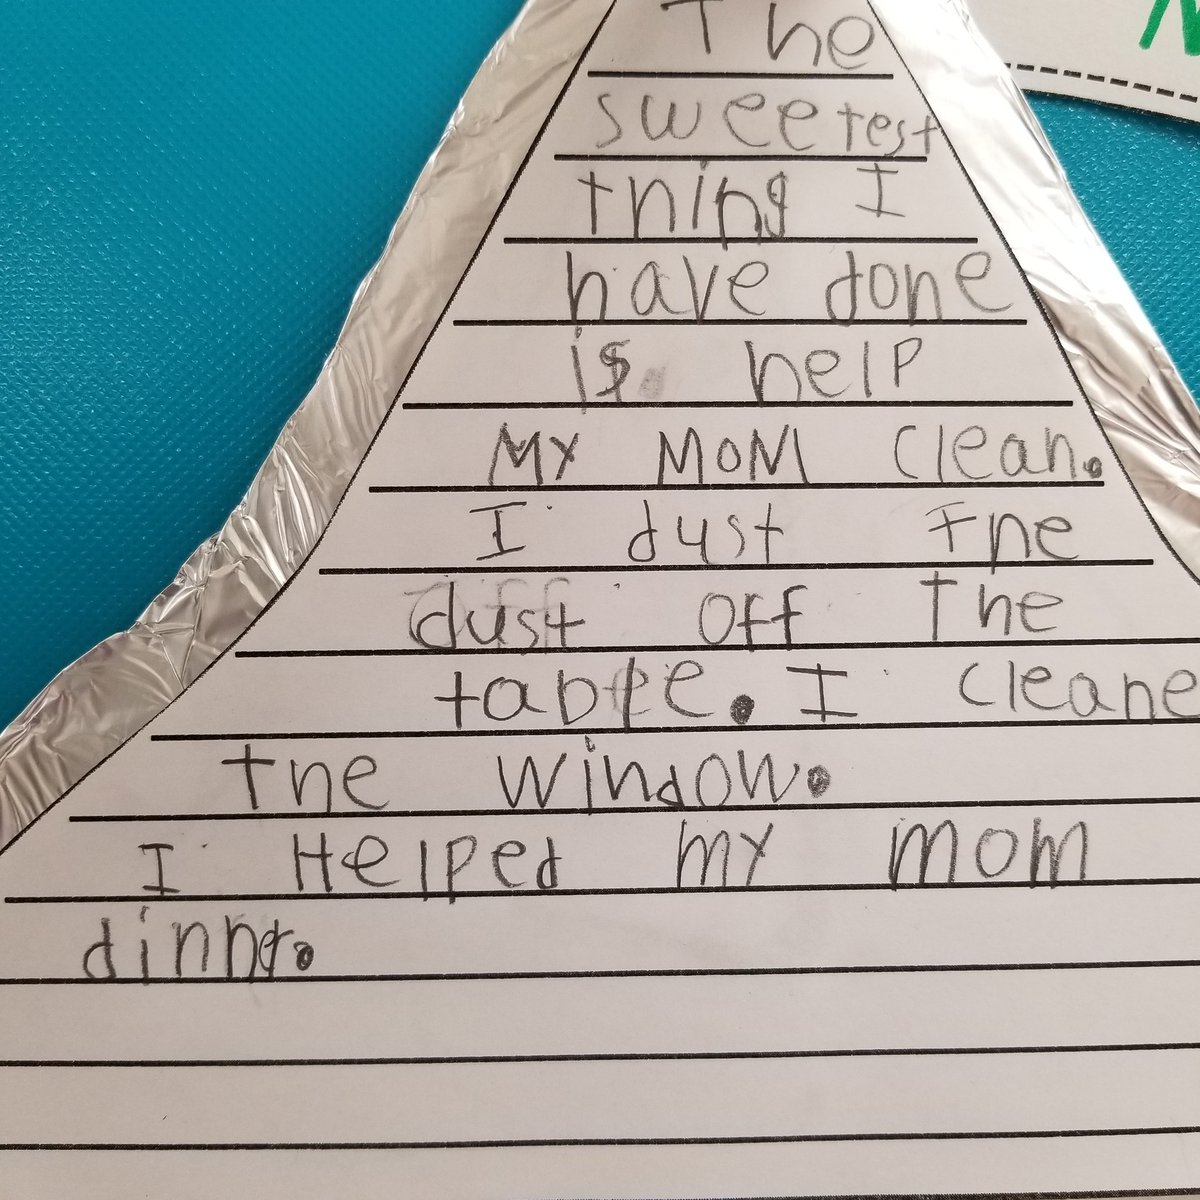 The
sweetest
thing I
have done
is help
My MoM clean.
I dust the
dust off the
table. I cleane
the window.
I Helped my mom
dinner.